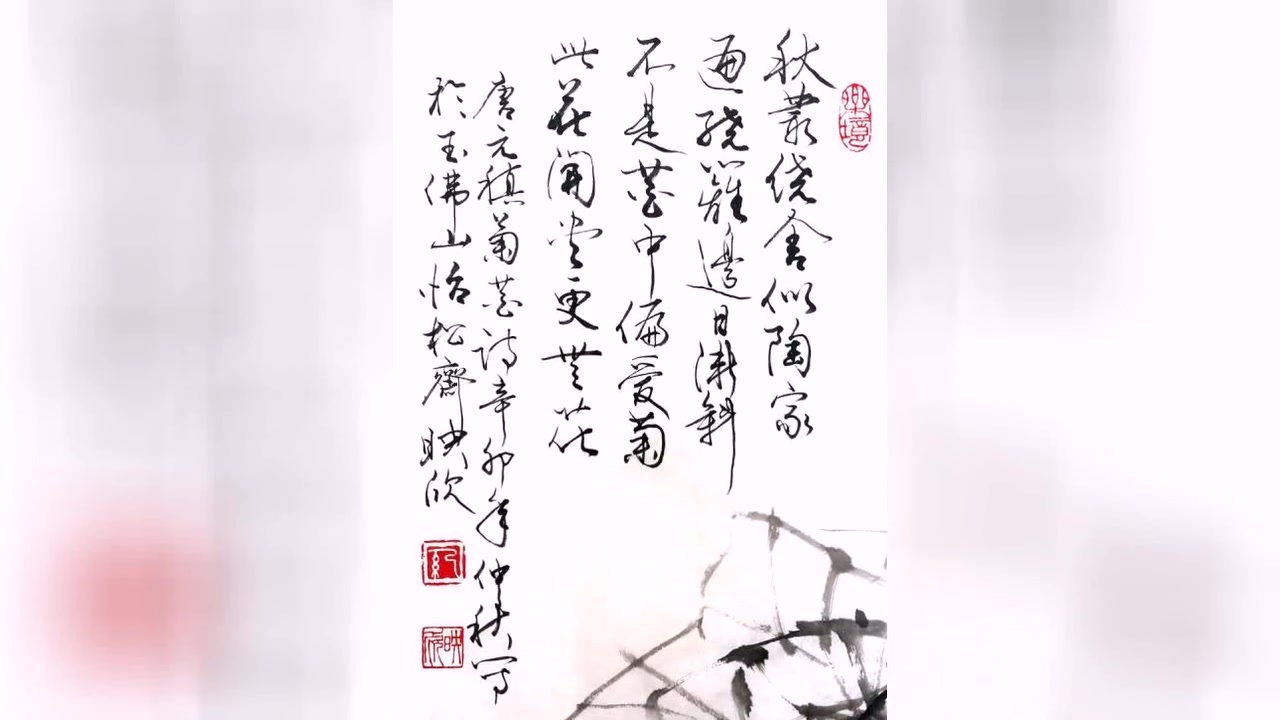 秋叢绕舍似陶家
遍绕籬邊日漸斜
不是花中偏爱菊
此花開尽更無花
唐元稹菊花詩辛卯年仲秋写
於玉佛山怡松齋映欣